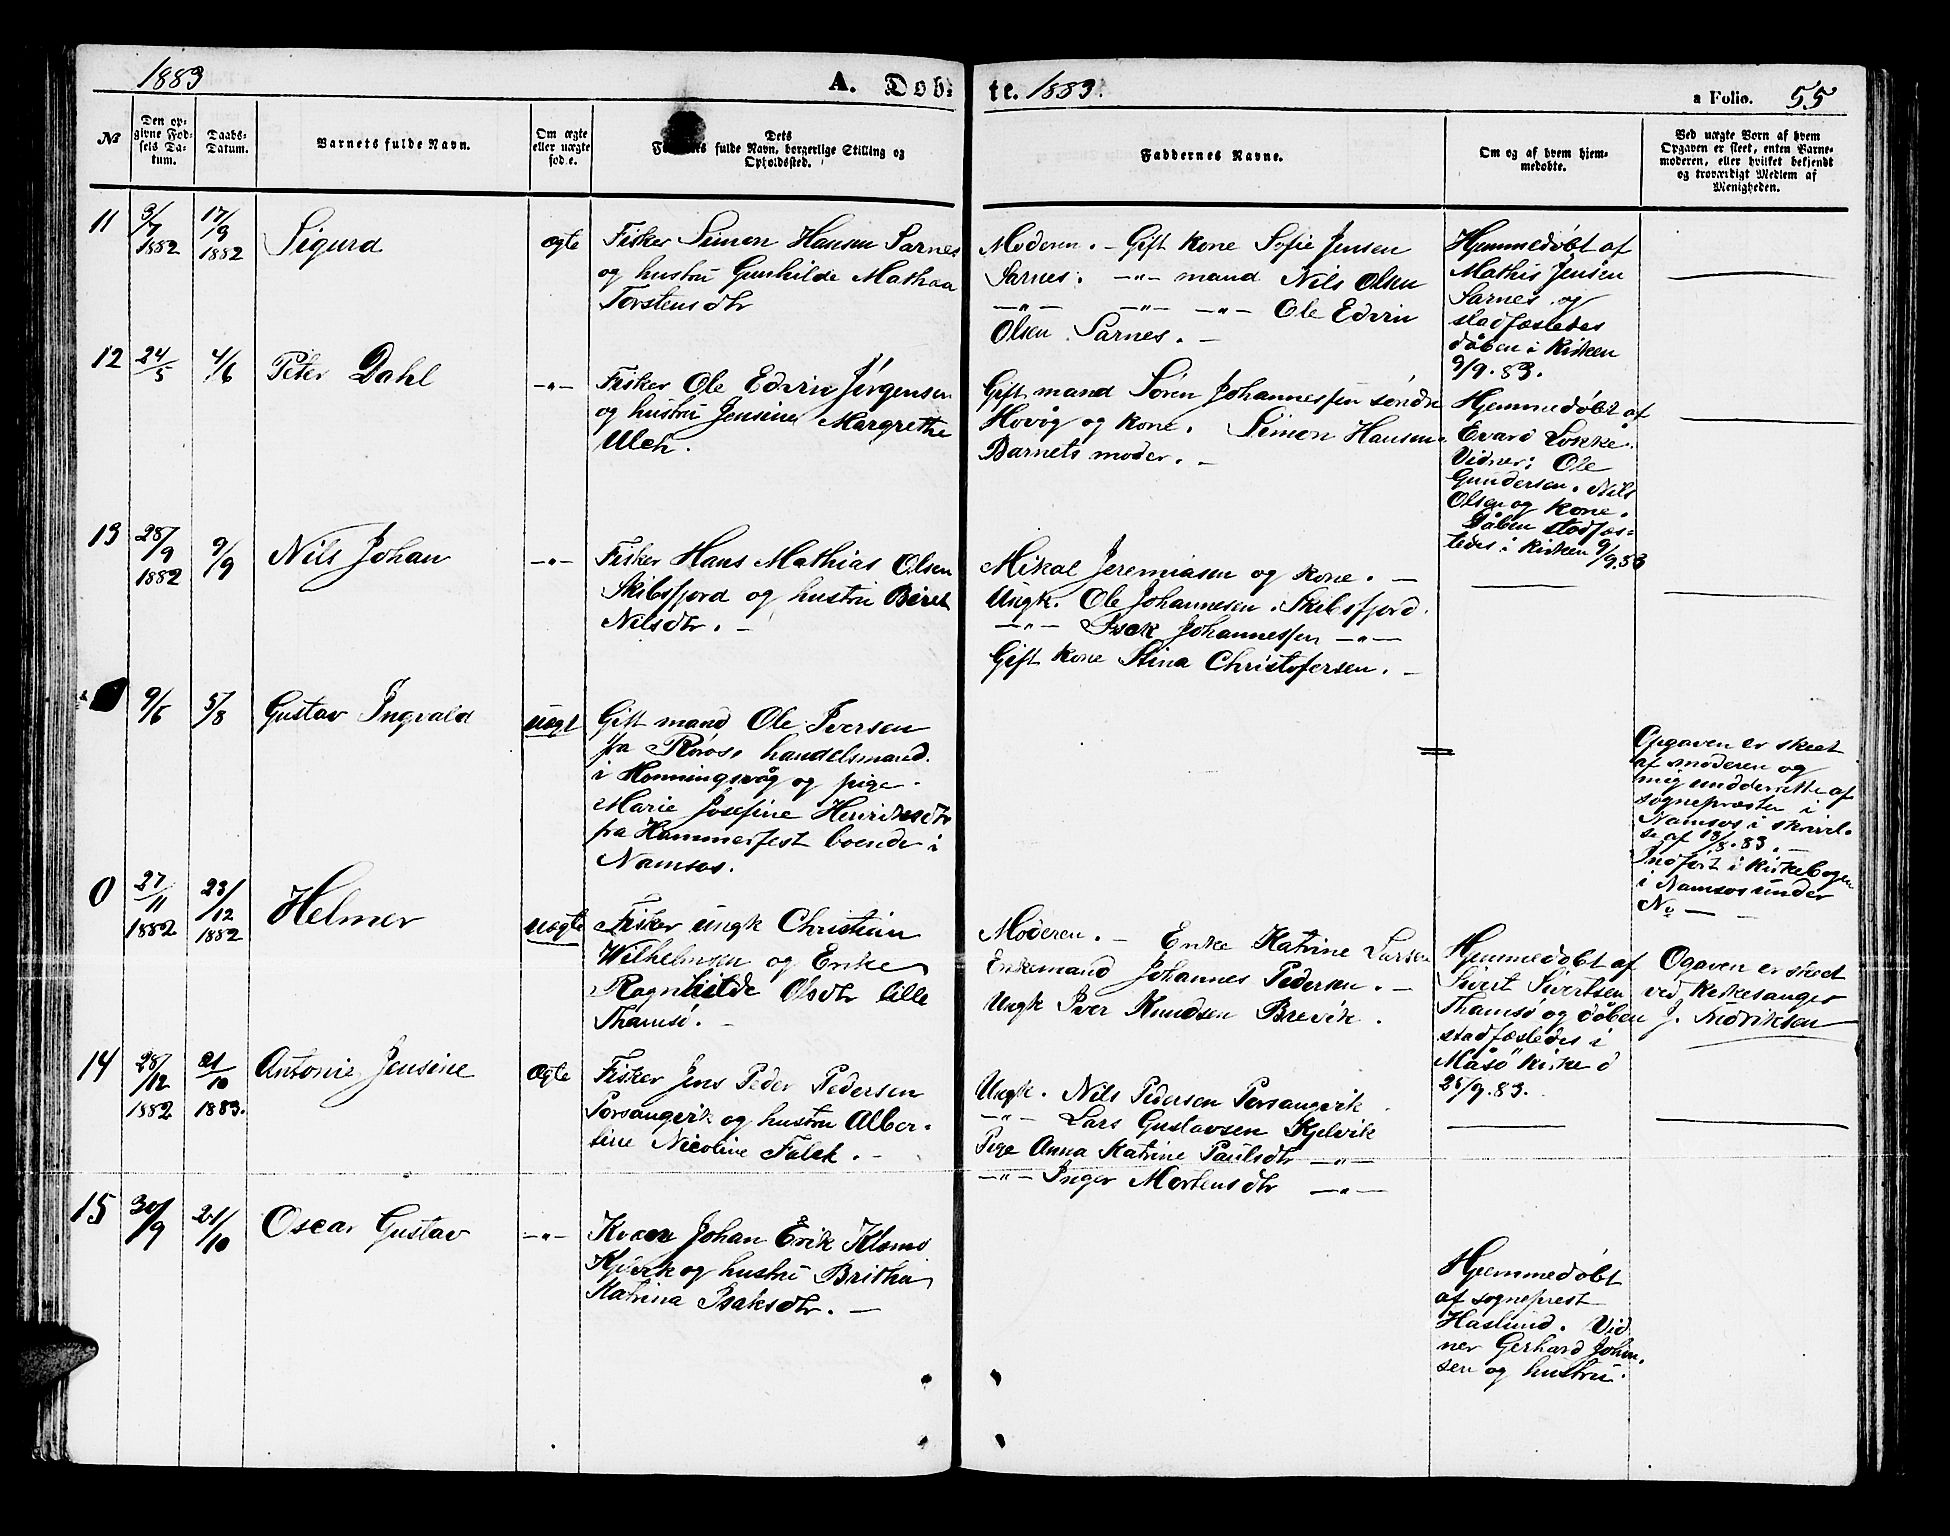 1883
A. Døb-
te. 1883.
a Folio. 55
№
Den op-
givne Fød-
sels Da-
tum.
Daabs-
Datum.
Barnets fulde Navn.
Om ægte
eller uægte
fød.e.
Dets
fulde Navn, borgerlige Stilling og
Opholdssted.
Faddernes Navne.
Om og af hvem hjem-
medøbte.
Ved uægte Børn af hvem
Opgaven er skeet, enten Barne-
moderen, eller hvilket bekjendt
og troværdigt Medlem af
Menigheden.
11
3/7
1882
17/9
1882
Sigurd
ægte
Fisker Simon Hansen Sarnes
og hustru Gunhilde Mathea
Torstensdtr
Moderen. - Gift kone Sofie Jensen
Sarnes. -"- mand Nils Olsen
-"- -"- -"- Ole Edvin
Olsen Sarnes. -
Hjemmedøbt af
Mathis Jensen
Sarnes og
stadfæstedes
dåben i kirken
9/9. 83.
12
24/5
4/6
Peter Dahl
-"-
Fisker Ole Edvin Jørgensen
og hustru Jensine Margrethe
Ulch.
Gift mand Søren Johannessen søndre
Hovåg og kone. Simon Hansen.
Barnets moder. -
Hjemmedøbt af
Evard Løkke.
Vidner: Ole
Gundersen. Nils
Olsen og kone.
Dåben stadfæs-
tedes i kirken 9/9. 83
13
28/9
1882
9/9
Nils Johan
-"-
Fisker Hans Mathias Olsen
Skibsfjord og hustru Beret
Nilsdtr. -
Mikal Jeremiasen og kone. -
Ungk. Ole Johannesen. Skibsfjord.
-"- Isak Johannessen -"-
Gift kone Stina Christofersen. -
9/6
5/8
Gustav Ingvald
uægt
Gift mand Ole Iversen
fra Røros, handelsmand.
i Honningsvåg og pige
Marie Josefine Henriksdtr
fra Hammerfest boende i
Namsos.
Opgaven er skeet
af moderen og
mig underrette af
sognepræsten i
Namsos i skrivel-
se af 18/8. 83. -
Indført i kirkebogen
i Namsos under
No -
0
27/11
1882
23/12
1882
Helmer
uægte
Fisker ungk Christian
Wilhelmsen og Enke
Ragnhilde Olsdtr lille
Thamsø. -
Moderen. - Enke Katrine Larsen
Enkemand Johannes Pedersen. -
Ungk Iver Knudsen Brevik.
Hjemmedøbt af
Sivert Sivertsen
Thamsø og dåben
stadfæstedes i
Måsø kirke d
25/9. 83.
Ogaven er skeet
ved kirkesanger
J. Fredriksen
14
28/12
1882
21/10
1883.
Antonie Jensine
ægte
Fisker Jens Peder Pedersen
Porsangvik og hustru Alber-
tine Nicoline Falck. -
Ungk. Nils Pedersen Porsangvik
-"- Lars Gustavsen Kjelvik
Pige Anna Katrine Paulsdtr -"-
-"- Inger Mortensdtr -"-
15
30/9
21/10
Oscar Gustav
-"-
Kvæn Johan Erik Klemo
Kjelvik og hustru Britha
Katrina Isaksdtr. -
Hjemmedøbt
af sogneprest
Haslund. Vid-
ner Gerhard Johan-
sen og hustru.